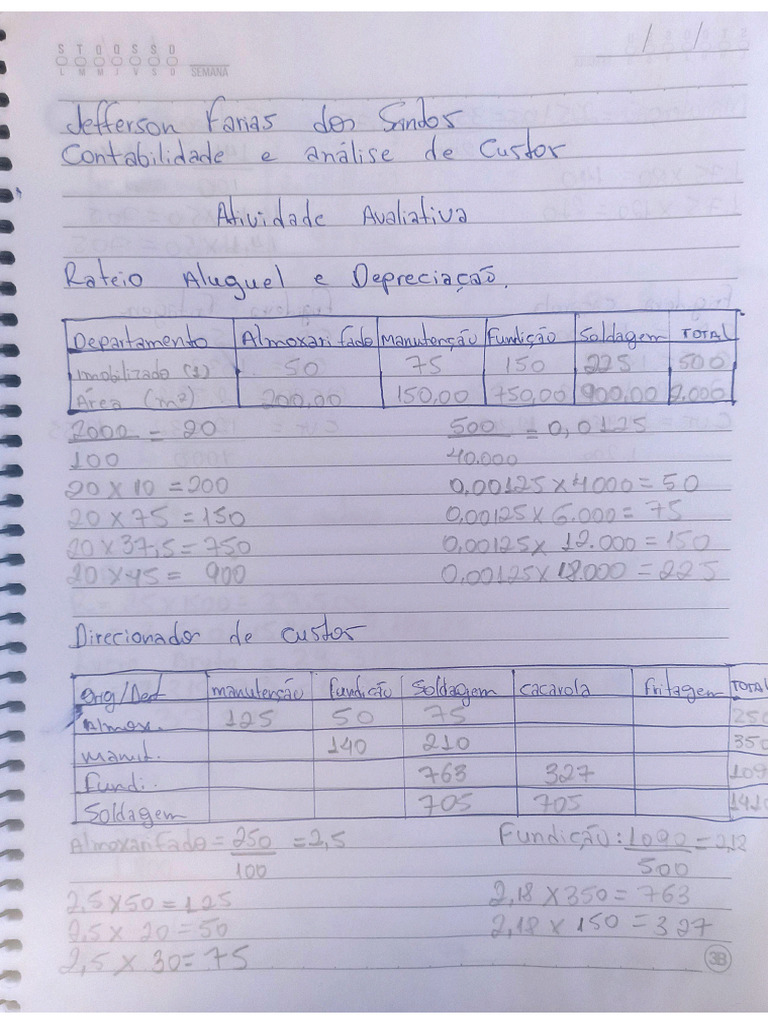 S T Q Q S S D
L M M J V S D SEMANA
/ /
Jefferson Farias dos Santos
Contabilidade e análise de Custos
Atividade Avaliativa
Rateio Aluguel e Depreciação.
Departamento Almoxarifado Manutenção Fundição Soldagem TOTAL
Imobilizado ($) 50 75 150 225 500
Área (m²) 200,00 150,00 750,00 900,00 2.000
2000 = 20 500 = 0,0125
100 40.000
20 x 10 = 200 0,00125 x 4000 = 50
20 x 75 = 150 0,00125 x 6.000 = 75
20 x 37,5 = 750 0,00125 x 12.000 = 150
20 x 45 = 900 0,00125 x 18.000 = 225
Direcionador de custos
Orig/Dest manutenção fundição Soldagem cacarola fritagem TOTAL
Almox. 125 50 75 250
Manut. 140 210 350
Fundi. 763 327 109
Soldagem 705 705 1410
Almoxarifado = 250 = 2,5 Fundição: 1090 = 2,18
100 500
2,5 x 50 = 125 2,18 x 350 = 763
2,5 x 20 = 50 2,18 x 150 = 327
2,5 x 30 = 75
3B